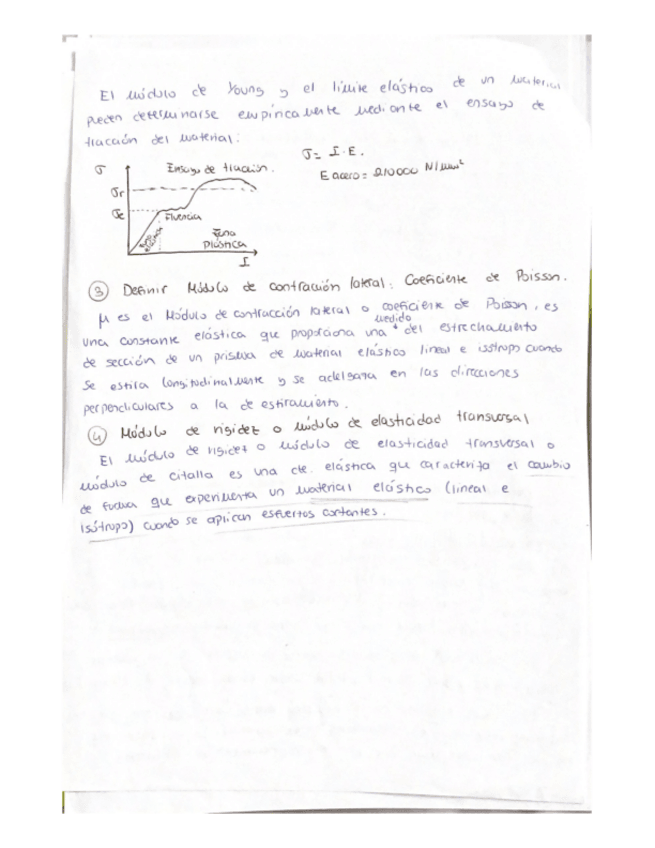 El módulo de Young y el límite elástico de un material
pueden determinarse empíricamente mediante el ensayo de
tracción del material:
σ Ensayo de tracción. σ = ξ · E.
σr E acero = 210000 N/mm²
σe Fluencia
Zona
Plástica
ξ
③ Definir Módulo de contracción lateral. Coeficiente de Poisson.
μ es el Módulo de contracción lateral o coeficiente de Poisson, es
una constante elástica que proporciona una medida del estrechamiento
de sección de un prisma de material elástico lineal e isótropo cuando
se estira longitudinalmente y se adelgaza en las direcciones
perpendiculares a la de estiramiento.
④ Módulo de rigidez o módulo de elasticidad transversal
El módulo de rigidez o módulo de elasticidad transversal o
módulo de cizalla es una cte. elástica que caracteriza el cambio
de forma que experimenta un material elástico (lineal e
isótropo) cuando se aplican esfuerzos cortantes.